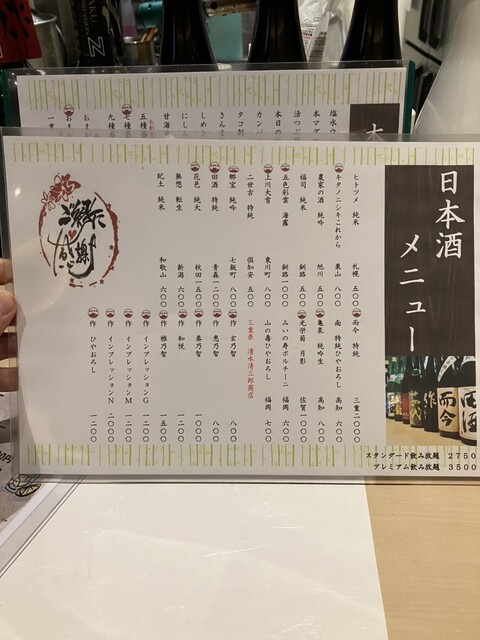 日本酒
メニュー
ヒトツメ 純米 札幌 五〇〇
キタノニシキこれから 栗山 八〇〇
農家の酒 純吟 旭川 五〇〇
福司 純米 釧路 五〇〇
五色彩雲 海霧 釧路 一〇〇〇
上川大雪 東川町 八〇〇
二世古 特純 倶知安 五〇〇
郷宝 純吟 七飯町 八〇〇
田酒 特純 青森 一二〇〇
花邑 純大 秋田 一五〇〇
無想 転生 新潟 六〇〇
紀土 純米 和歌山 六〇〇
而今 特純 三重 二〇〇〇
南 特純ひやおろし 高知 六〇〇
亀泉 純吟生 高知 八〇〇
光栄菊 月影 佐賀 一〇〇〇
みいの寿ポルチーニ 福岡 六〇〇
山の壽ひやおろし 福岡 七〇〇
三重県 清水清三郎商店
作 玄乃智 八〇〇
作 恵乃智 八〇〇
作 奏乃智 一〇〇〇
作 和悦 一二〇〇
作 雅乃智 一五〇〇
作 インプレッションG 一二〇〇
作 インプレッションM 一二〇〇
作 インプレッションN 一二〇〇
作 ひやおろし 一二〇〇
スタンダード飲み放題 2750
プレミアム飲み放題 3500
ご縁に
感謝
而今
田酒
本マグ
活つぶ
本日の
カンパ
タコ
さんま
しめ
にしん
甘海老
五種
七種
九種